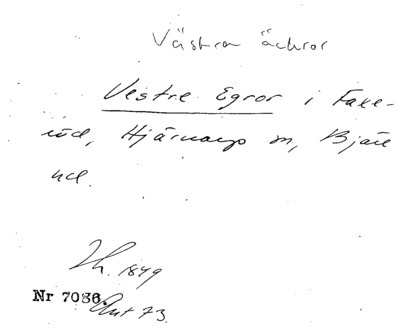 Västra åkror
Vestre Egror i Faxe-
röd, Hjärnarp sn, Bjäre
hd.
1849
Nr 7036.
Ant 73.